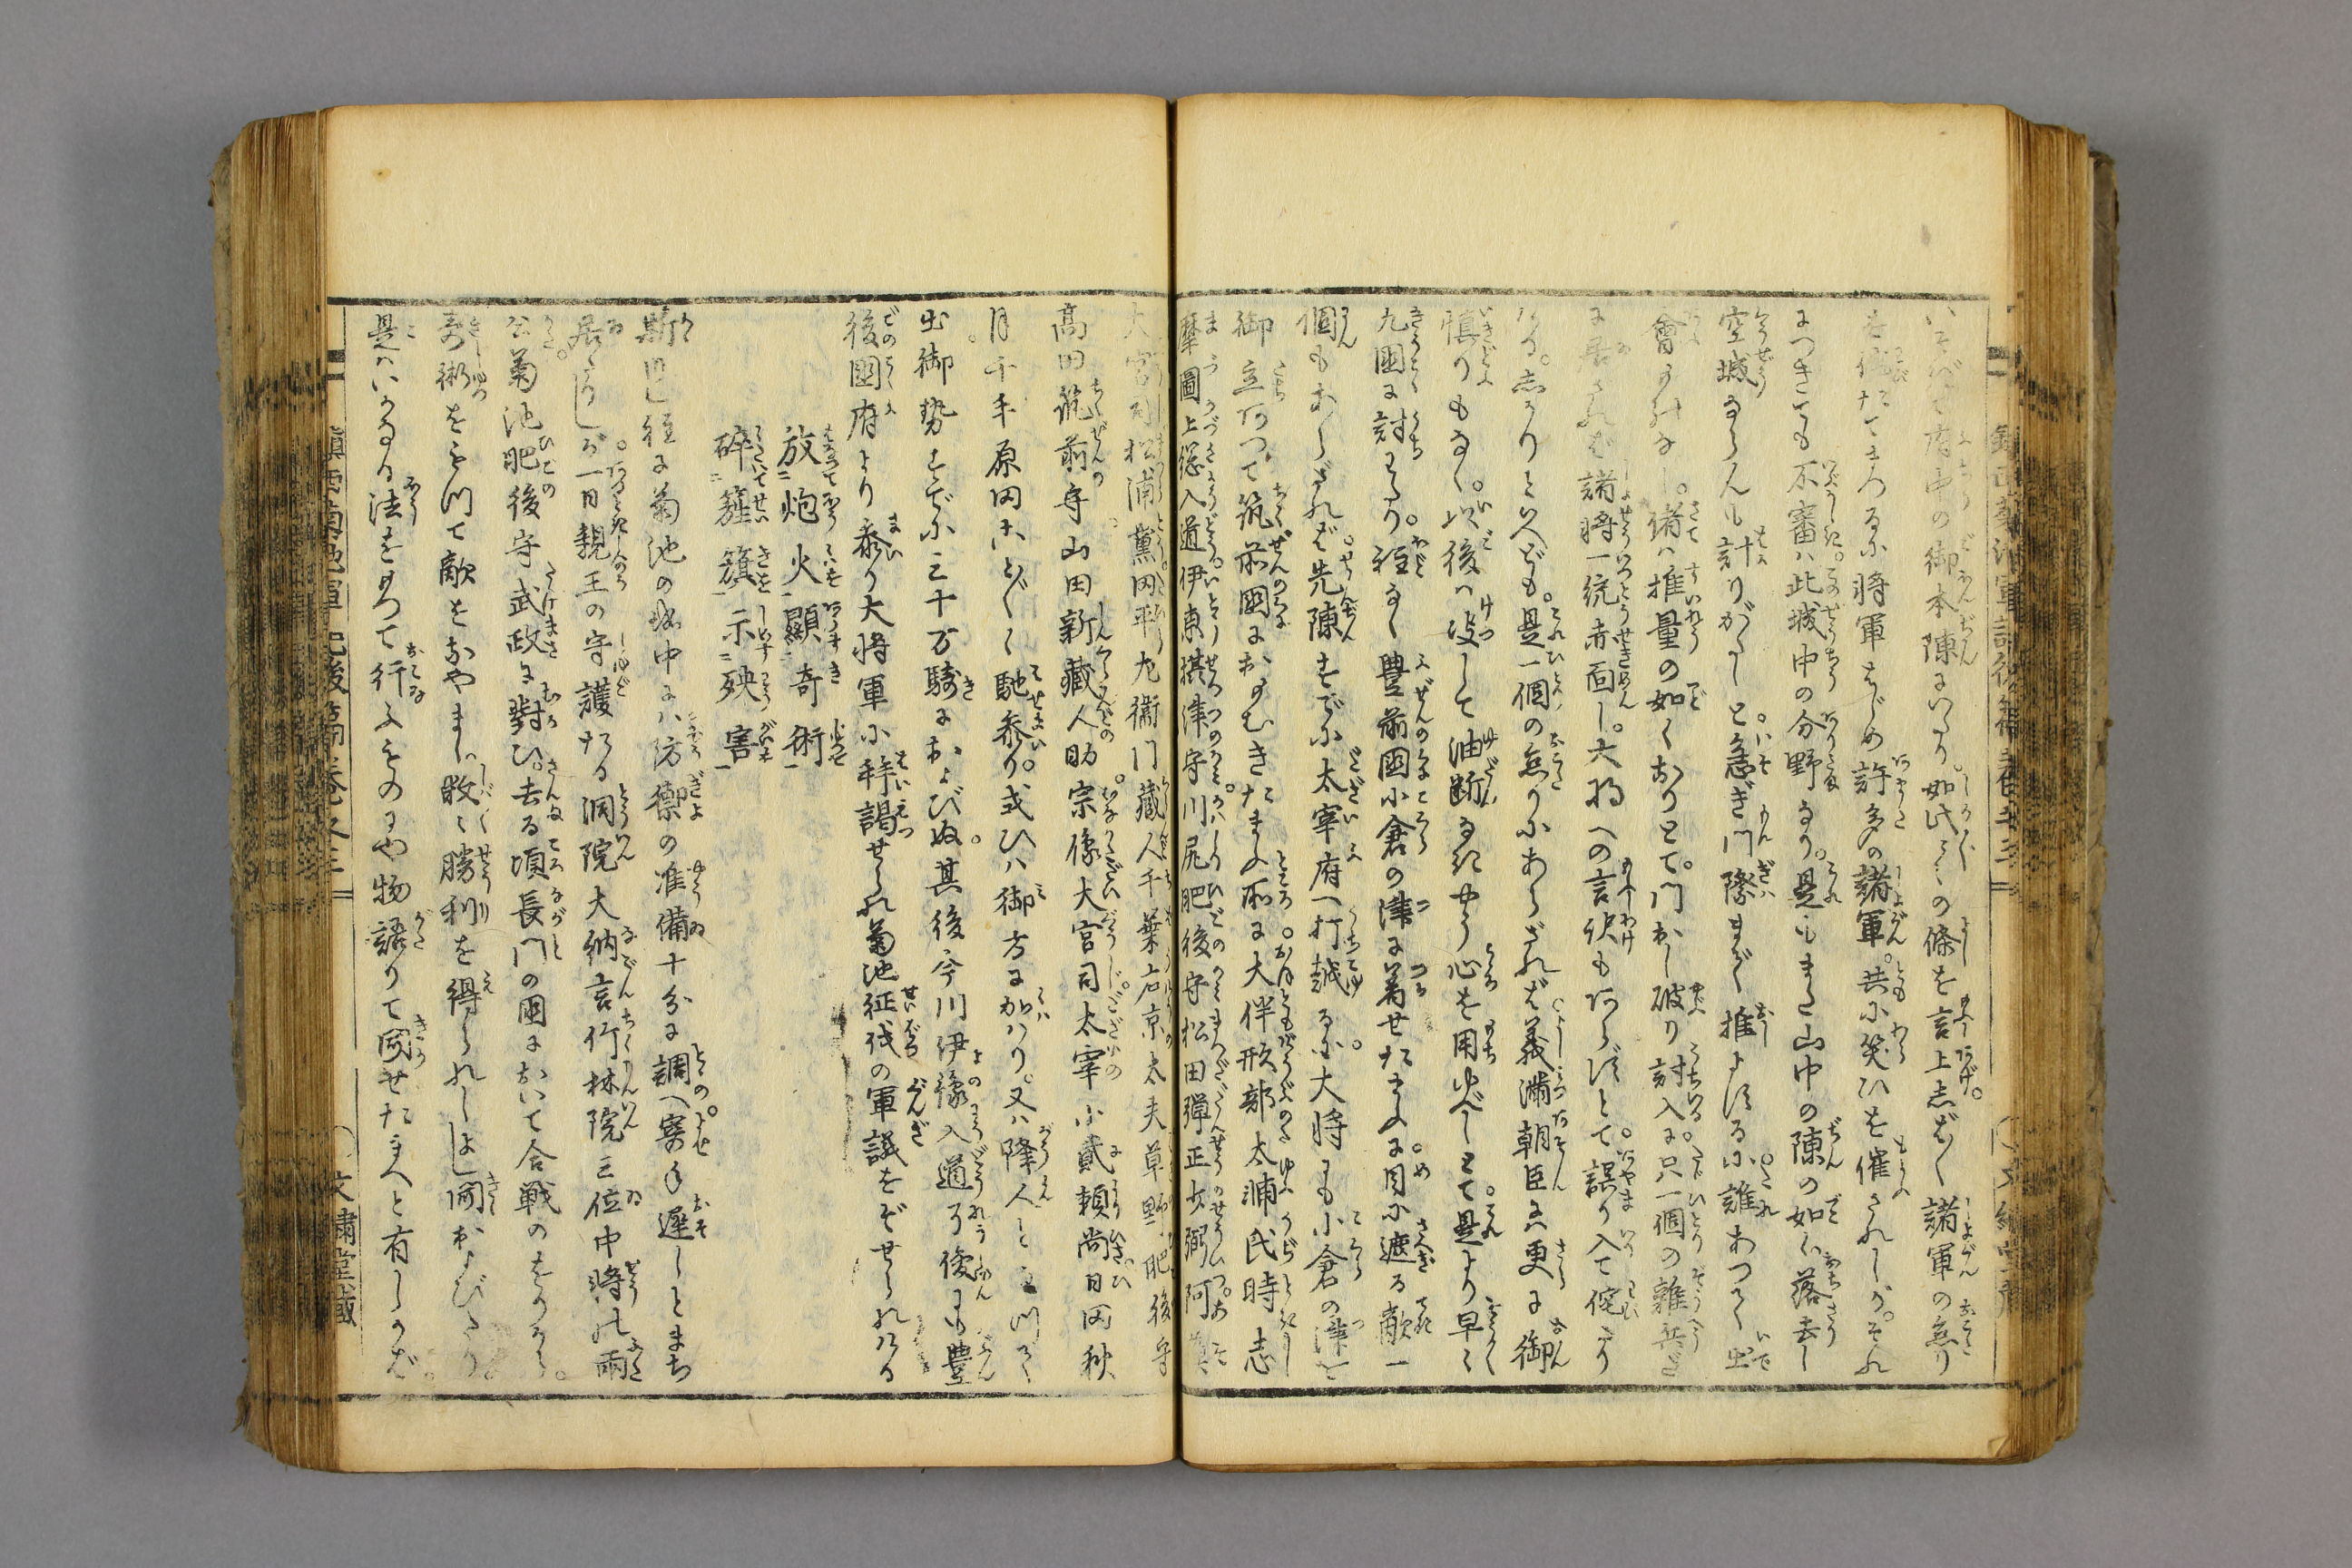 いそいで府中の御本陳にいたり。如此々々の條を言上しばらく諸軍の怠り
を侘たてまつるに將軍はじめ許多の諸軍。共に笑ひを催されしが。それ
につきても不審は此城中の分野なり。是もまた山中の陳の如く落去し
空城ならんも計りがたしと急ぎ門際まで推よする小誰あつて出
會ものなし。偖は推量の如くなりとて。門おし破り討入に只一個の雜兵だ
に居ざれば諸將一統赤面し。大將への言訳もあらずとて。誤り入て侘たり
ける。しかりといへども。是一個の怠りにあらざれば義滿朝臣も更に御
憤りもなく。以後は决して油断なきやう心を用ゆべしとて是より早々
九國に討わたり。程なく豊前國小倉の津に着せたまふに。目に遮る敵一
個もあらざれば先陳すでに太宰府へ打越るに。大將も小倉の津を
御立あつて筑前國におもむきたまふ所に大伴刑部太浦氏時志
摩圖上總入道伊東摂津守川尻肥後守松田彈正少弼阿
大宮司松浦黨岡平左衞門藏人千葉右京太夫草野肥後守
高田筑前守山田新藏人助宗像大宮司太宰小貳頼尚日田秋
月千手原田ことごとく馳参り或ひは御方に加はり。又は降人といつて
出御勢すでに三十万騎におよびぬ其後今川伊豫入道了俊も豊
後國府より参り大將軍に拝謁せられ菊池征伐の軍議をぞせられける
放炮火顯奇術
碎籬籏示殃害
斯し程に菊池の城中には防禦の准備十分に調へ寄手遲しとまち
居たりしが一日親王の守護たる洞院大納言竹林院三位中將の兩
公菊池肥後守武政に對ひ。去る頃長門の國において合戦のをりから。
奇術をもつて敵をなやまし。数々勝利を得られしよし聞およびたり
是はいかなる法をもつて行ふものにや物語りて聞せたまへと有しかば。
鎮西菊池軍記後篇巻之三
文繍堂藏